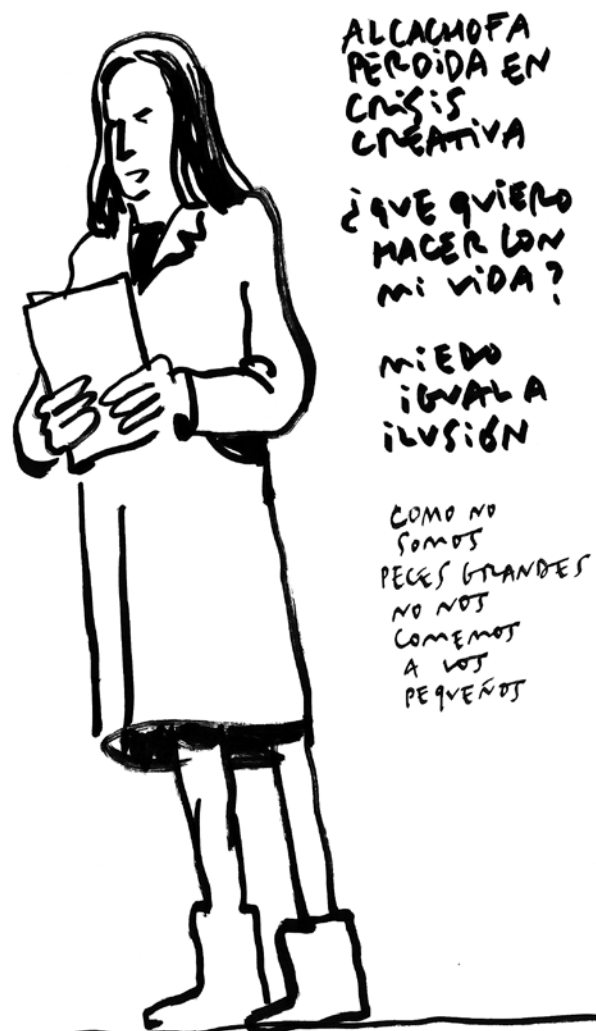 ALCACHOFA
PERDIDA EN
CRISIS
CREATIVA
¿QUE QUIERO
HACER CON
Mi ViDA?
MiEDO
iGUAL A
iLUSiÓN
COMO NO
SOMOS
PECES GRANDES
NO NOS
COMEMOS
A LOS
PEQUEÑOS